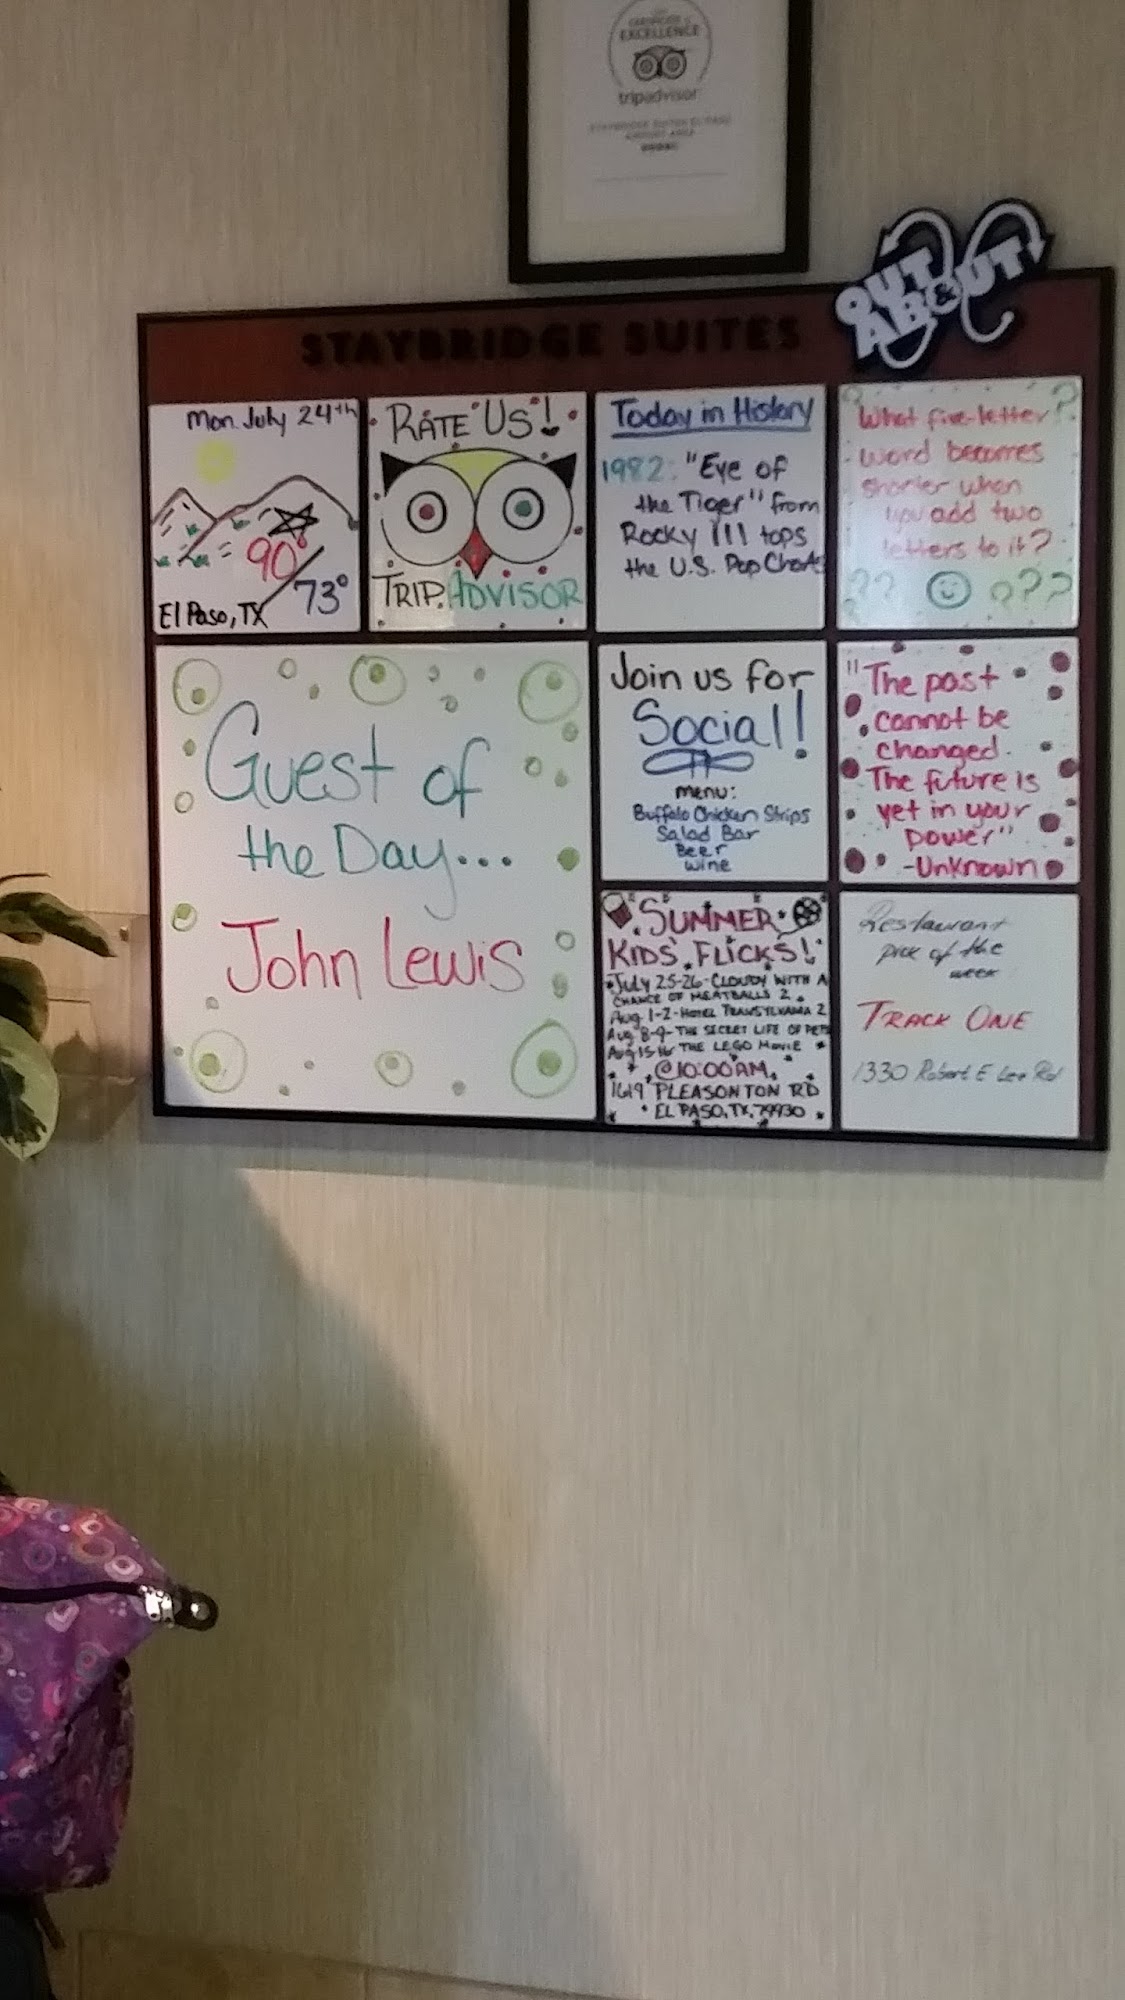 CERTIFICATE of
EXCELLENCE
tripadvisor
STAYBRIDGE SUITES EL PASO
AIRPORT AREA
OUT
& ABOUT
STAYBRIDGE SUITES
Mon. July 24th
90°
73°
El Paso, TX
RATE US!
TRIP ADVISOR
Today in History
1982: "Eye of
the Tiger" from
Rocky III tops
the U.S. Pop Charts
What five-letter
word becomes
shorter when
you add two
letters to it?
?? ???
Guest of
the Day...
John Lewis
Join us for
Social!
menu:
Buffalo Chicken Strips
Salad Bar
Beer
wine
"The past
cannot be
changed.
The future is
yet in your
power"
-Unknown
SUMMER
KIDS' FLICKS!
July 25-26-CLOUDY WITH A
CHANCE OF MEATBALLS 2
Aug 1-2-HOTEL TRANSYLVANIA 2
Aug 8-9-THE SECRET LIFE OF PETS
Aug 15-16 THE LEGO MOVIE
@10:00AM
1619 PLEASONTON RD
EL PASO, TX, 79930
Restaurant
pick of the
week
TRACK ONE
1330 Robert E Lee Rd